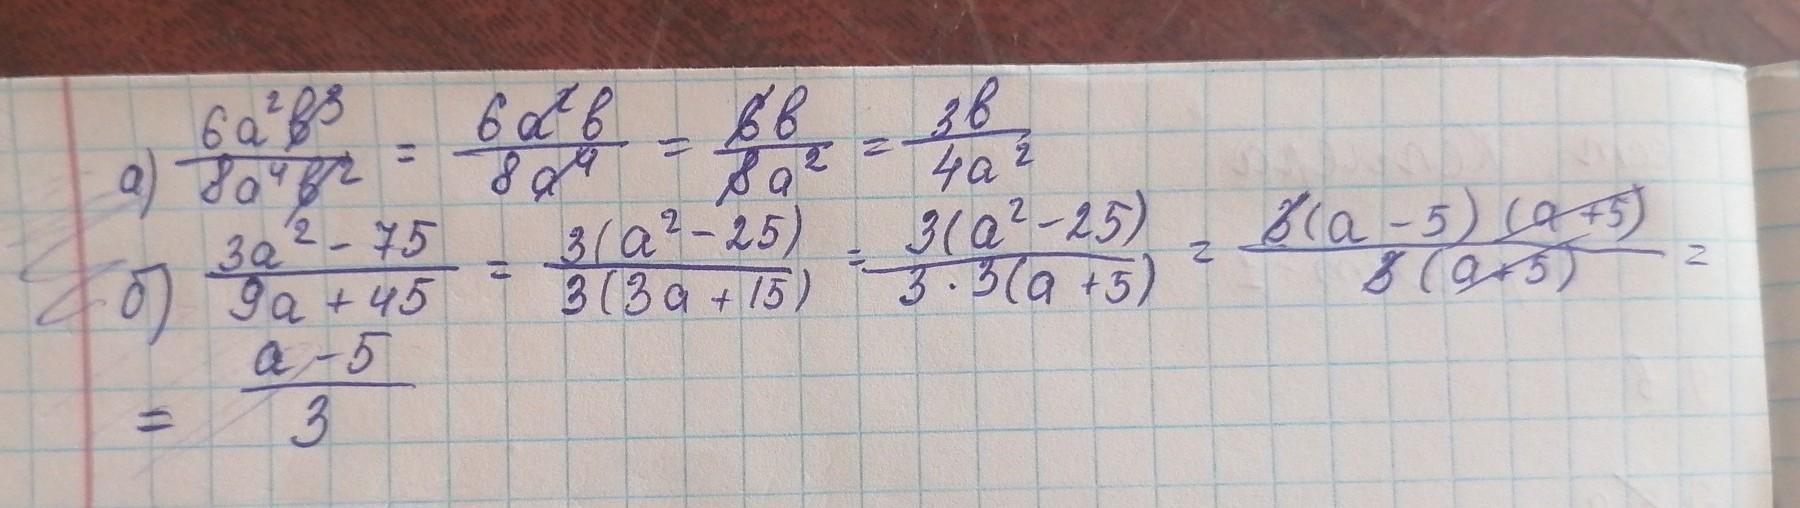 а) 6a²b³/8a⁴b² = 6a²b/8a⁴ = 6b/8a² = 3b/4a²
б) 3a² - 75/9a + 45 = 3(a² - 25)/3(3a + 15) = 3(a² - 25)/3 · 3(a + 5) = 3(a - 5)(a + 5)/3(a + 5) =
= a - 5/3